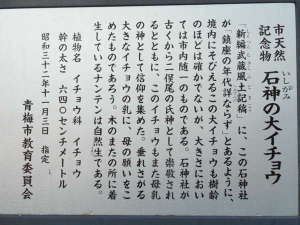 市天然
記念物
いしがみ
石神の大イチョウ
「新編武蔵風土記稿」に、この石神社
が「鎮座の年代詳ならず」とあるように、
境内にそびえるこの大イチョウも樹齢
のほどは確かでないが、大きさにおい
ては市内随一のものである。石神社が
古くから二俣尾の氏神として崇敬され
るとともに、このイチョウもまた母乳
の神として信仰を集めた。垂れさがる
大きなイチョウの乳に、母の願いをこ
めたものであろう。大木のまたの所に着
生しているナンテンは自然生である。
植物名 イチョウ科 イチョウ
幹の太さ 六四〇センチメートル
昭和三十二年十一月三日 指定
青梅市教育委員会